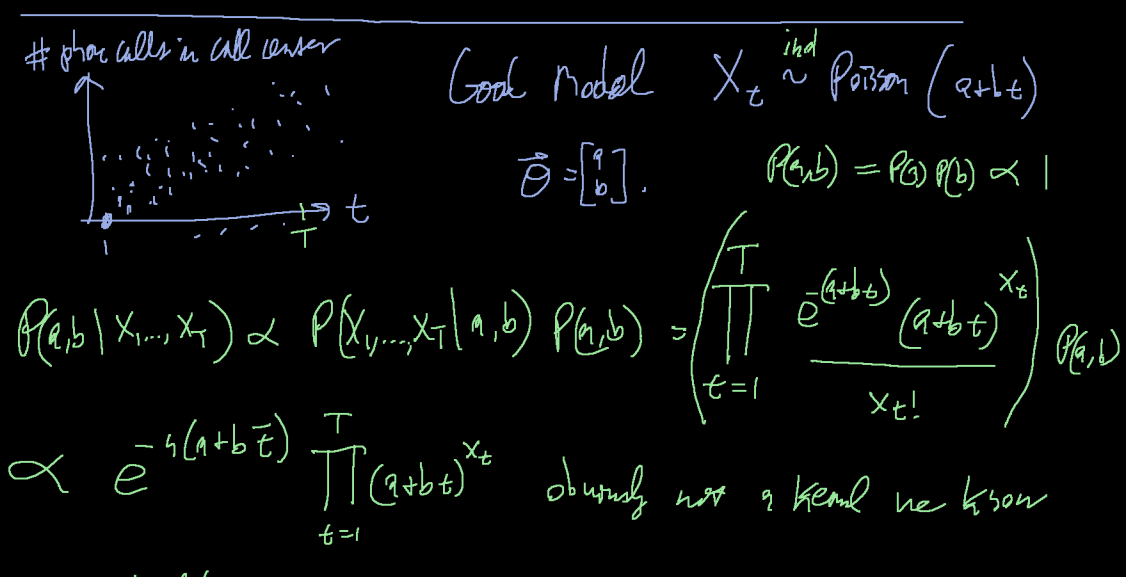 # phone calls in call center
Good Model X_t ~^{ind} Poisson (a+bt)
t
1 T
θ⃗ = [a b].
P(a,b) = P(a) P(b) ∝ 1
P(a,b | X_1,..., X_T) ∝ P(X_1,...,X_T | a,b) P(a,b) = ( ∏_{t=1}^{T} e^{-(a+bt)} (a+bt)^{x_t} / x_t! ) P(a,b)
∝ e^{-n(a+b t̄)} ∏_{t=1}^{T} (a+bt)^{x_t} obviously not a kernel we know